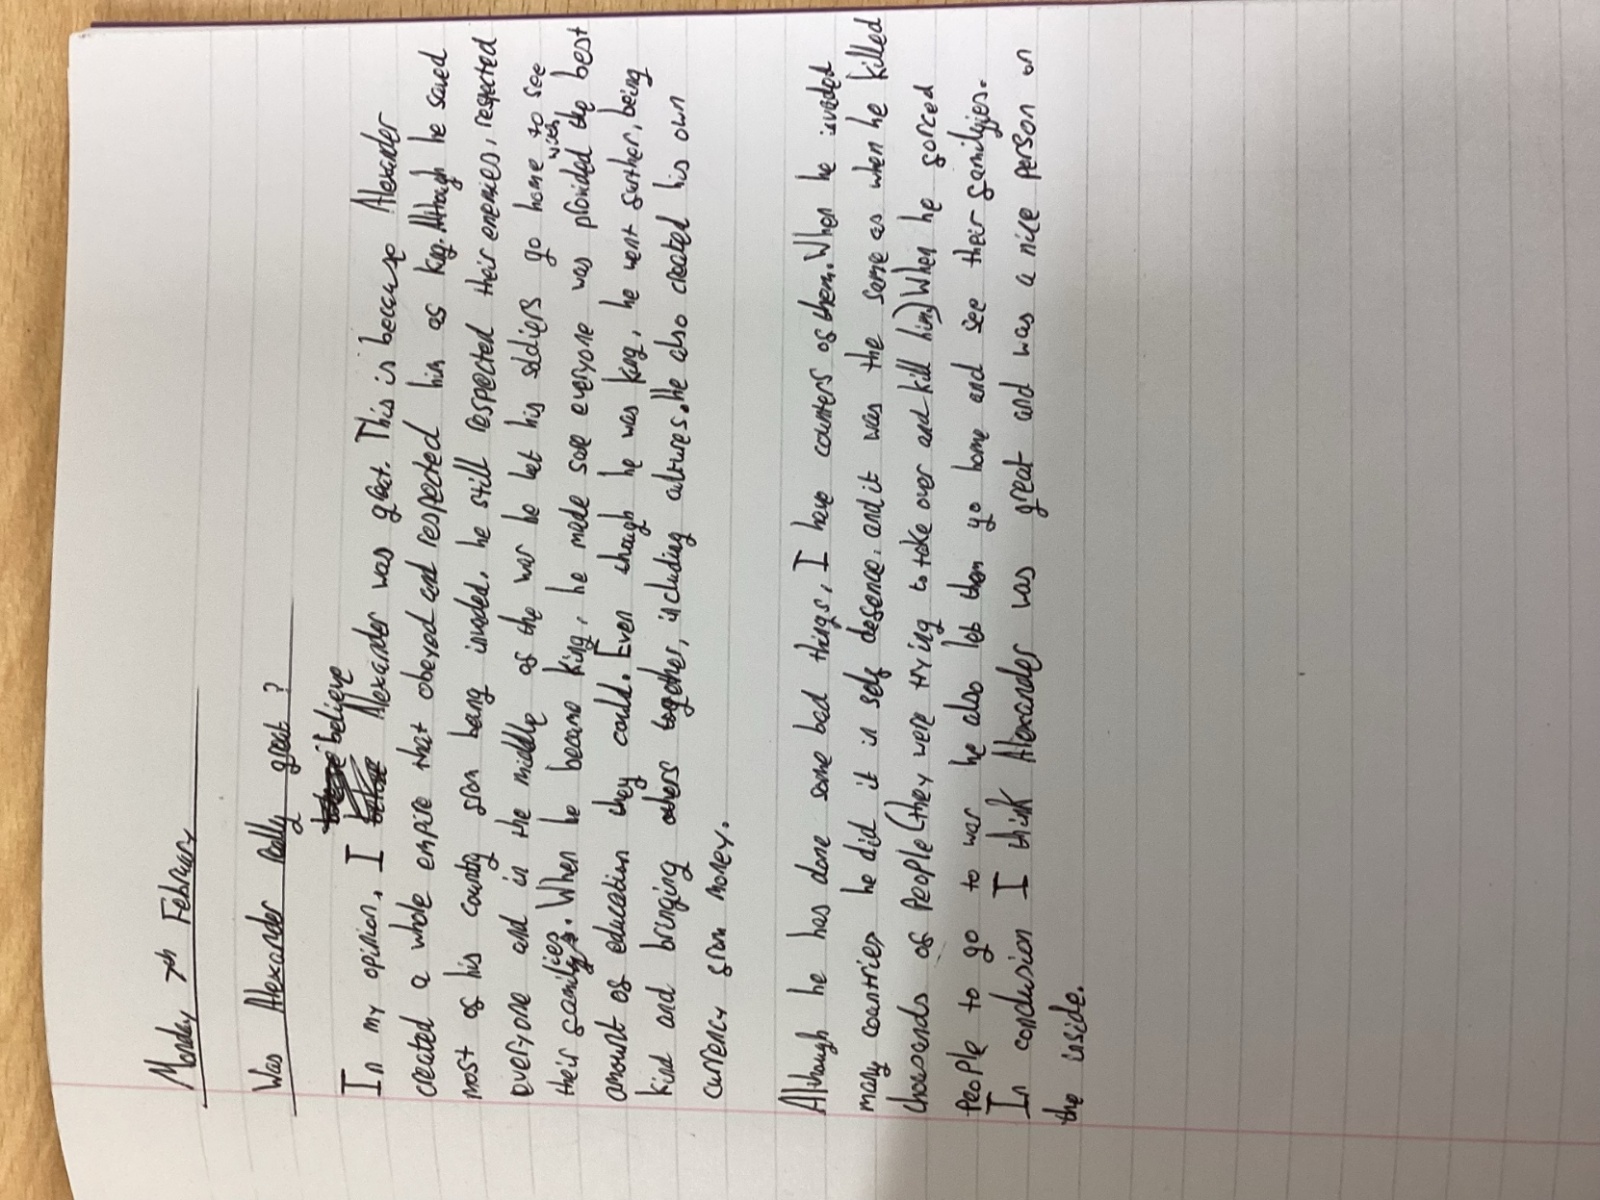 Monday 7th February
Was Alexander really great?
In my opinion, I believe Alexander was great. This is because Alexander
created a whole empire that obeyed and respected him as king. Although he saved
most of his country from being invaded, he still respected their enemies, respected
everyone and in the middle of the war he let his soldiers go home to see
their families. When he became king, he made sure everyone was provided with the best
amount of education they could. Even though he was king, he went further, being
kind and bringing others together, including cultures. He also created his own
currency from money.
Although he has done some bad things, I have counters of them. When he invaded
many countries he did it in self defence, and it was the same as when he killed
thousands of people (they were trying to take over and kill him) When he forced
people to go to war he also let them go home and see their families.
In conclusion I think Alexander was great and was a nice person on
the inside.